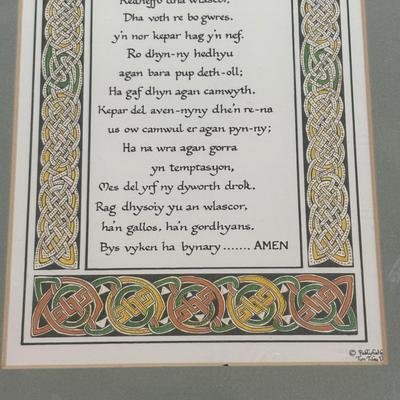 Re dheffo dha wlascor,
Dha voth re bo gwres.
y'n nor kepar hag y'n nef.
Ro dhyn-ny hedhyu
agan bara pup deth-oll;
Ha gaf dhyn agan camwyth.
Kepar del aven-nyny dhe'n re-na
us ow camwul er agan pyn-ny;
Ha na wra agan gorra
yn temptasyon,
Mes delyrf ny dyworth drok.
Rag dhysoiy yu an wlascor,
ha'n gallos, ha'n gordhyans.
Bys vyken ha bynary ....... AMEN
©